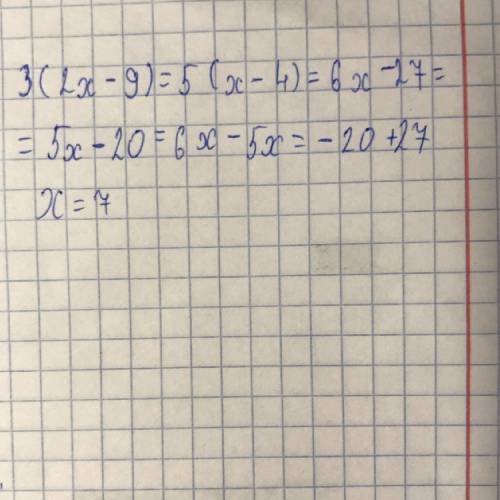 3(2x-9)=5(x-4)=6x-27=
=5x-20=6x-5x=-20+27
x=7